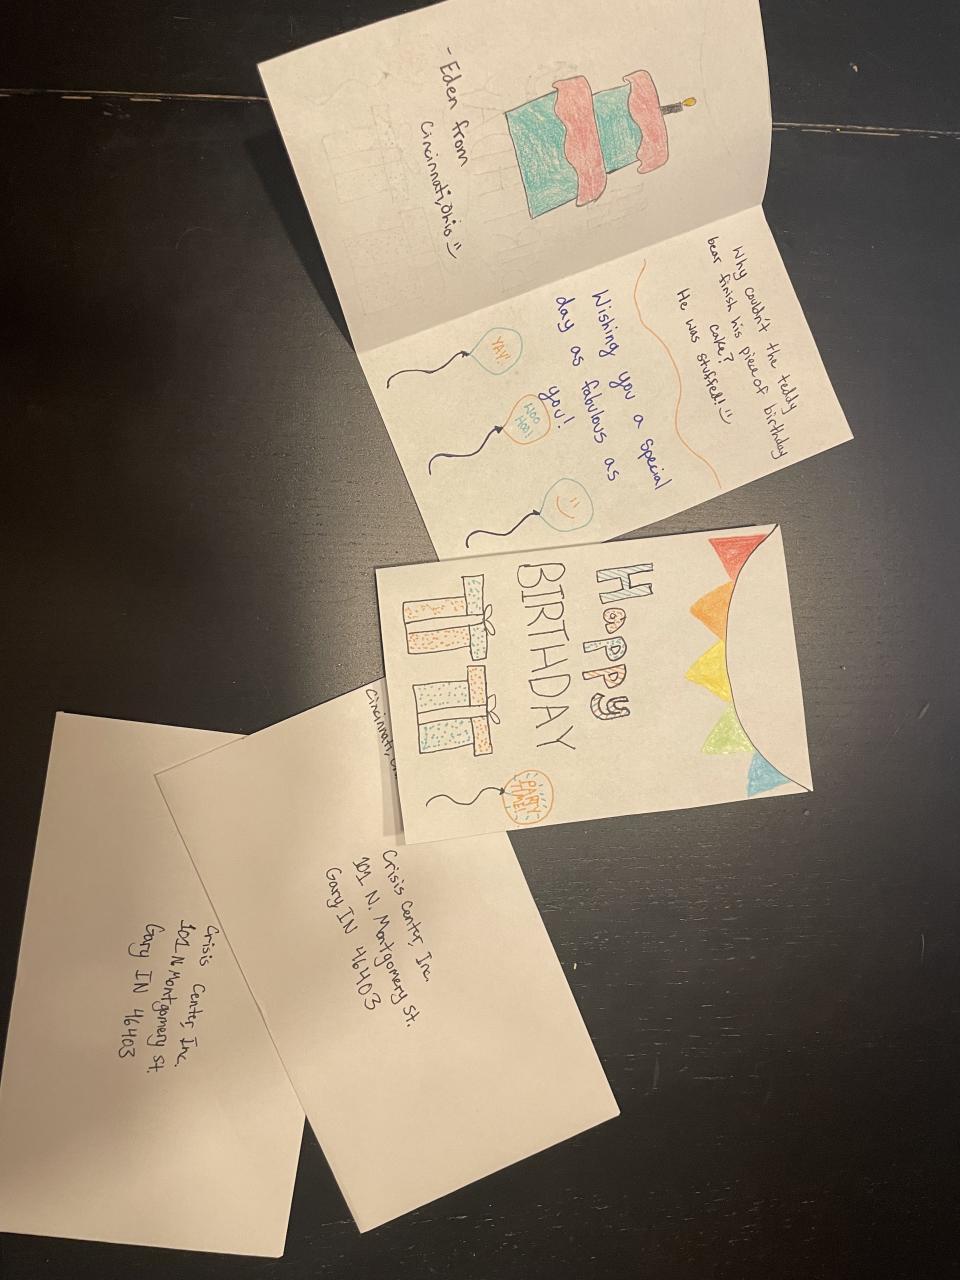 Why couldn't the teddy
bear finish his piece of birthday
cake?
He was stuffed!
Wishing you a special
day as fabulous as
you!
YAY!
WOO
HOO!
-Eden from
Cincinnati, Ohio
Happy
BIRTHDAY
PARTY
TIME!
Cincinnati,
Crisis Center, Inc.
101 N. Montgomery St.
Gary IN 46403
Crisis Center, Inc.
101 N Montgomery St.
Gary IN 46403